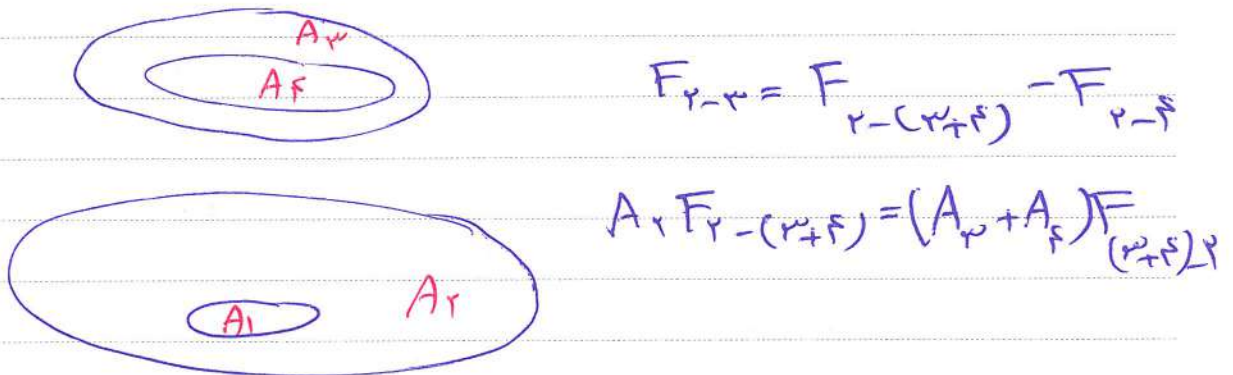 A۳
A۴
F۲-۳ = F۲-(۳+۴) - F۲-۴
A۲ F۲-(۳+۴) = (A۳ + A۴) F(۳+۴)-۲
A۲
A۱